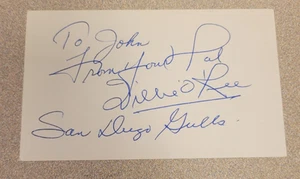 To John
From Your Pal
Willie O'Ree
San Diego Gulls.